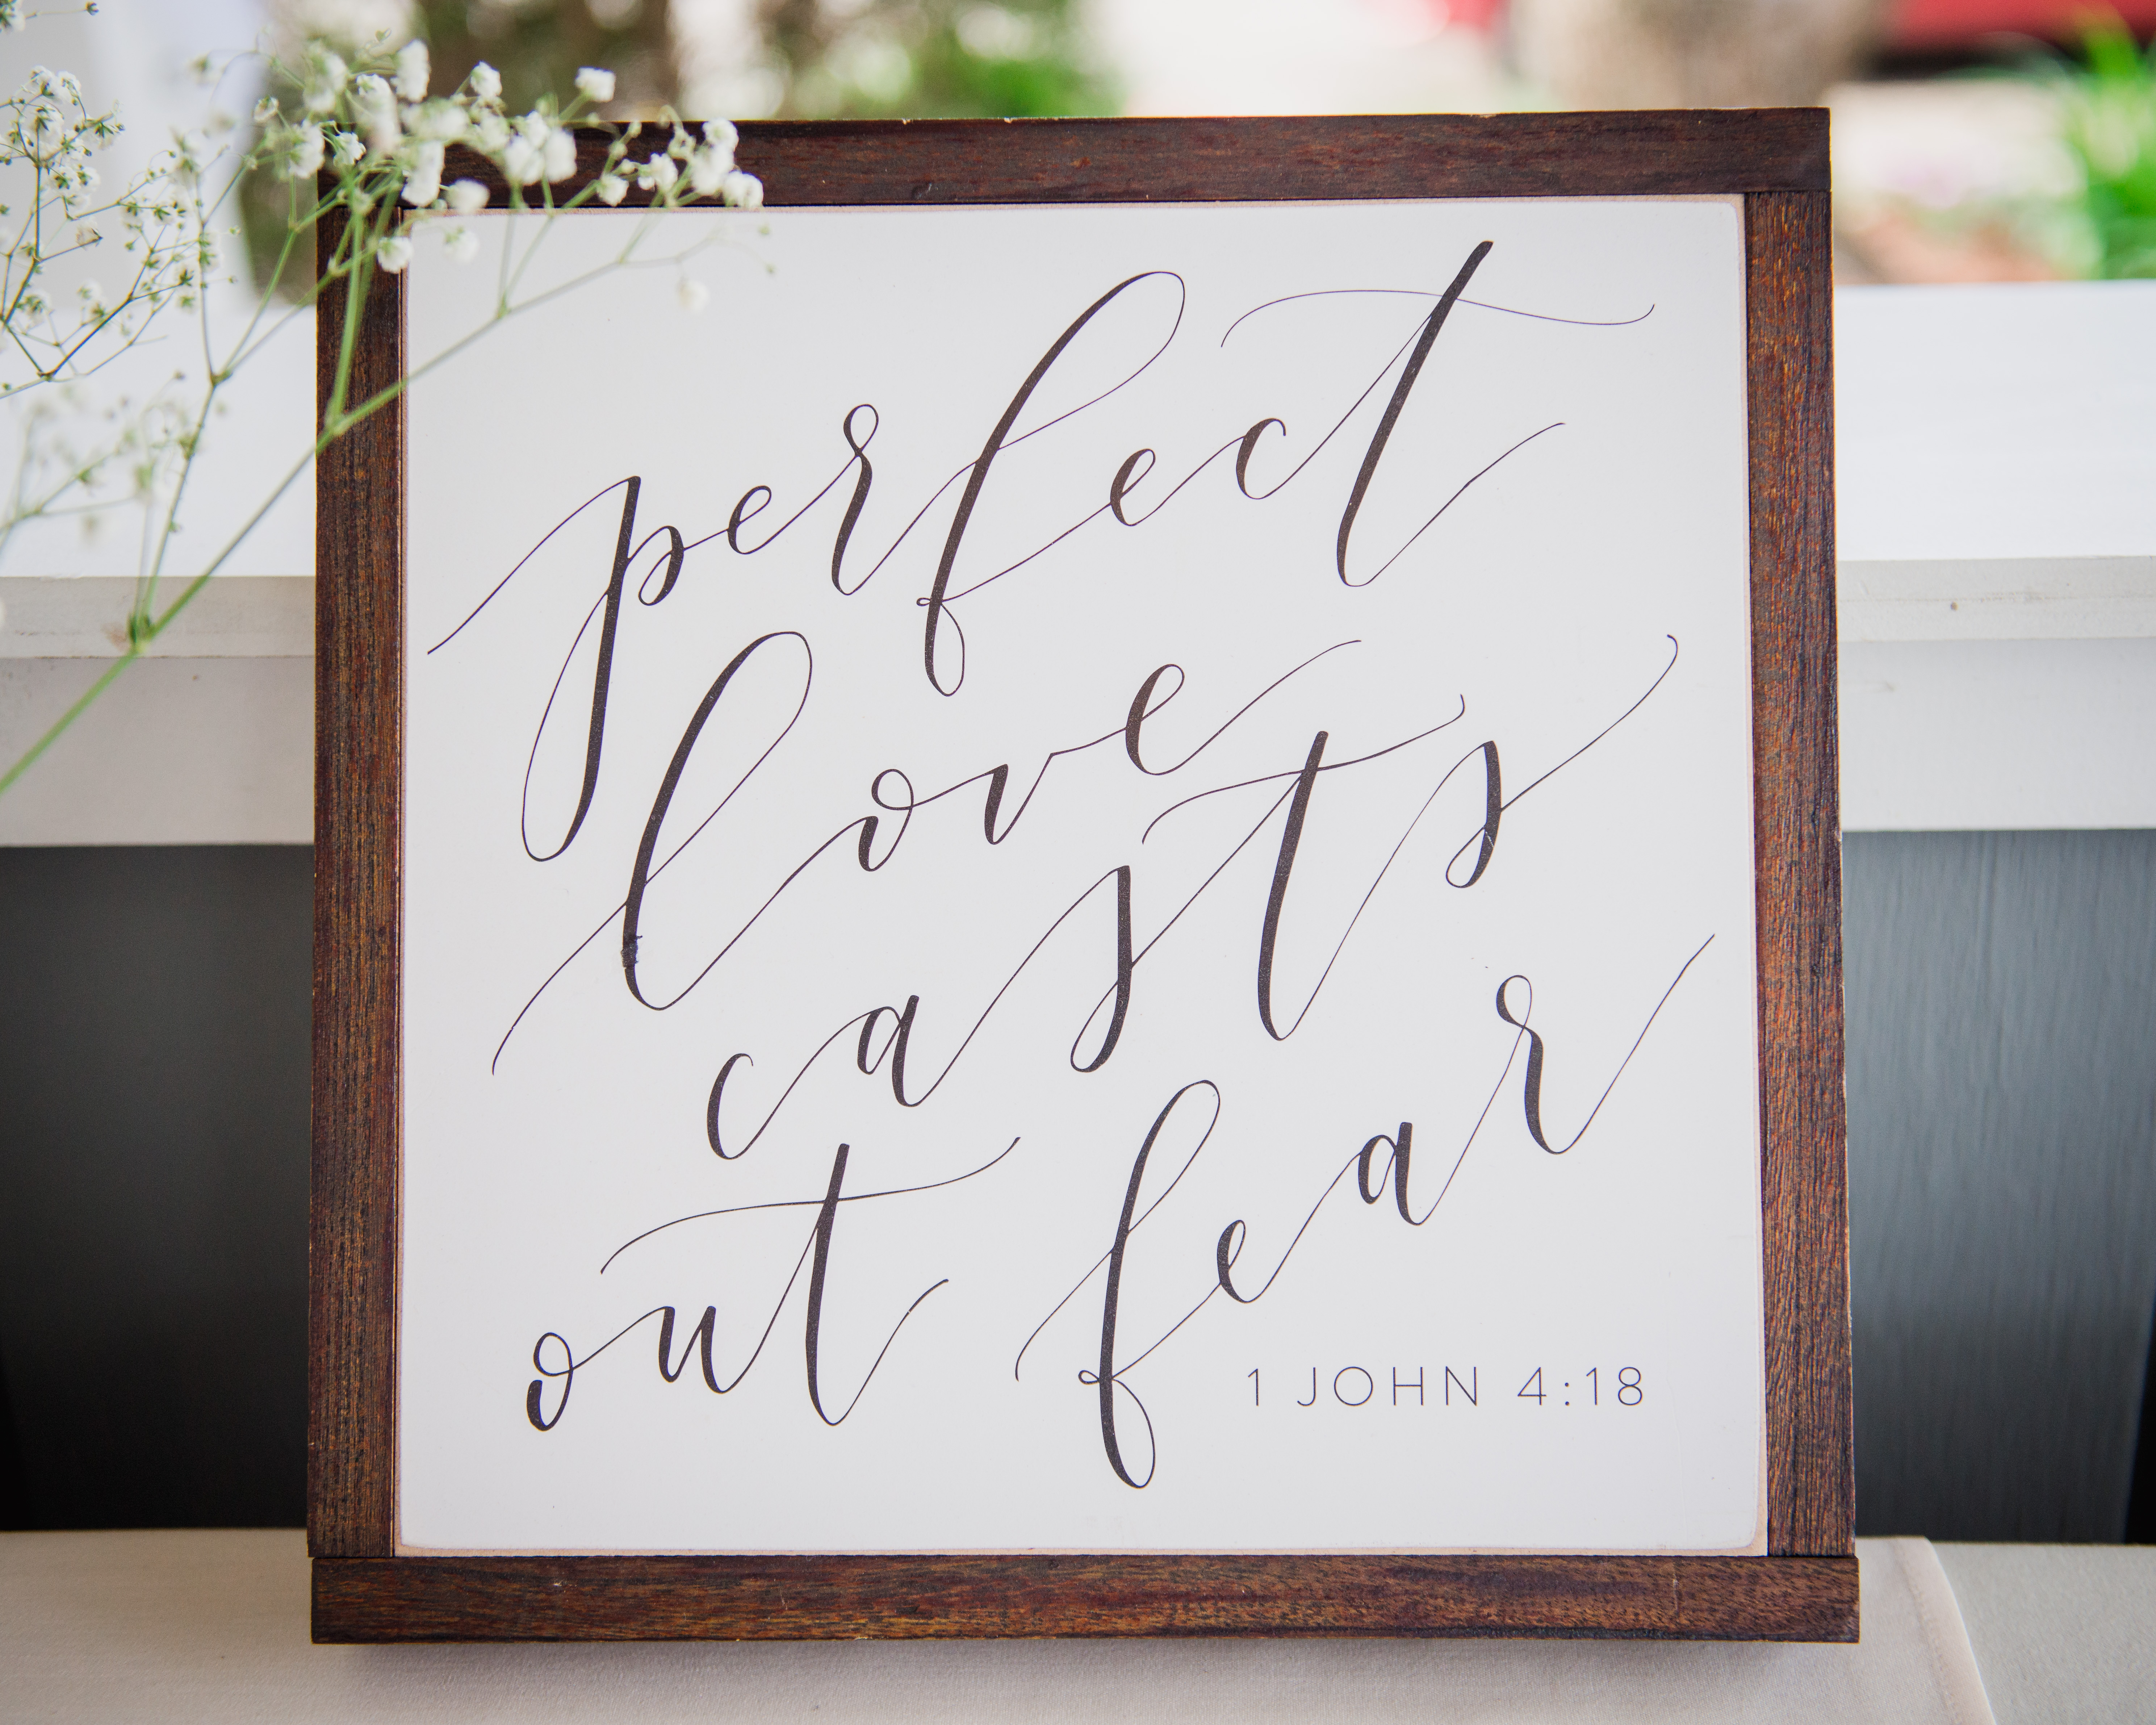 perfect
love
casts
out fear
1 JOHN 4:18